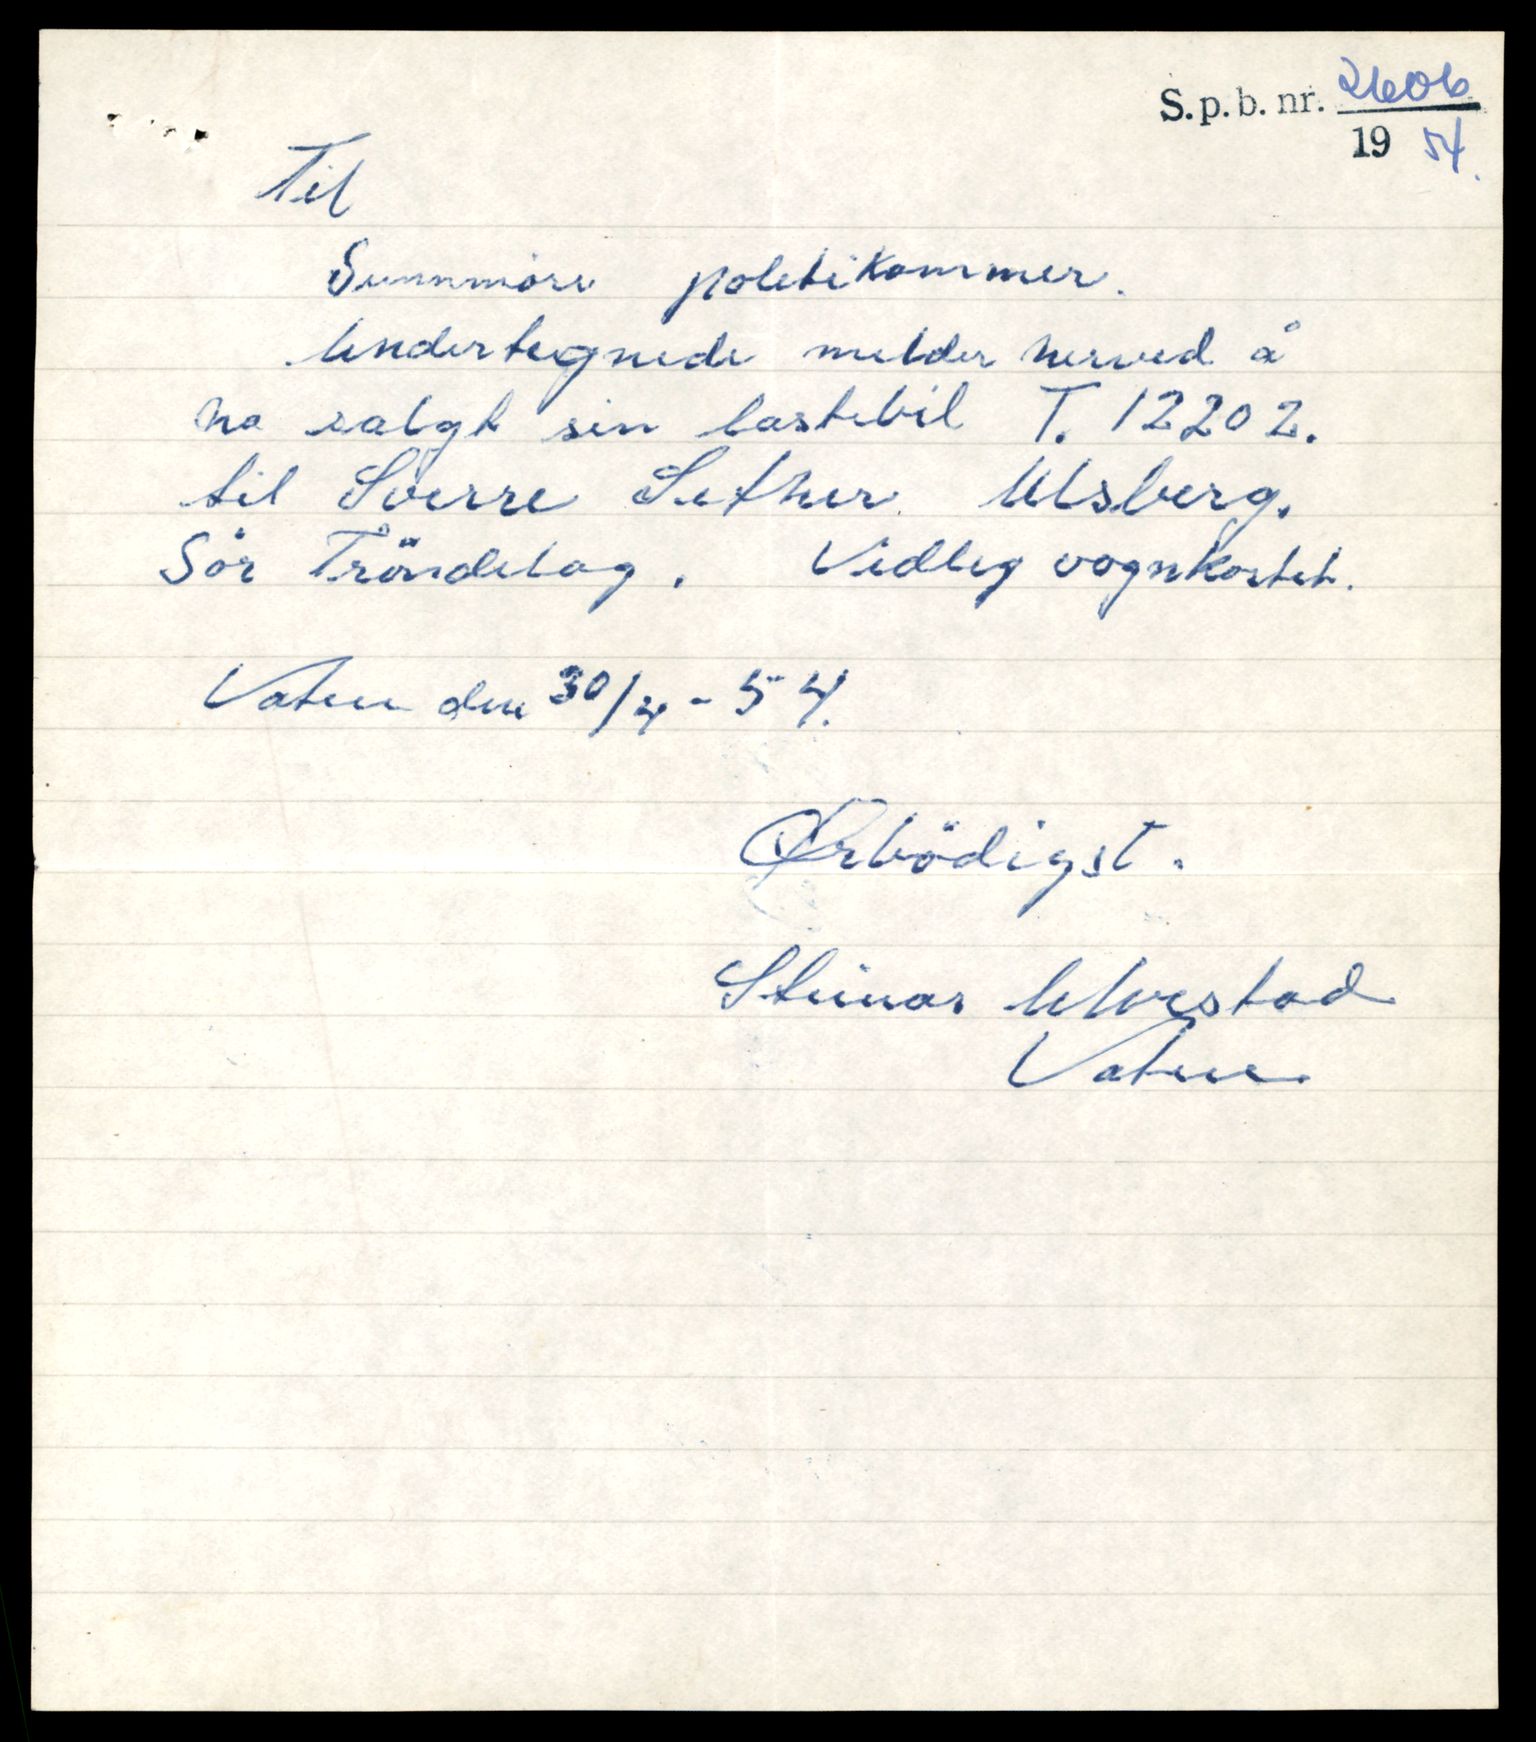 S.p.b. nr. 2606
19 54.
Til
Sunnmöre politikammer.
Undertegnede melder herved å
ha salgt sin lastebil T. 12202.
til Sverre Sether Ulsberg.
Sör Tröndelag. Vedleg vognkortet.
Vatne den 30/4 - 54.
Ærbödigst.
Steinar Ulvestad
Vatne.